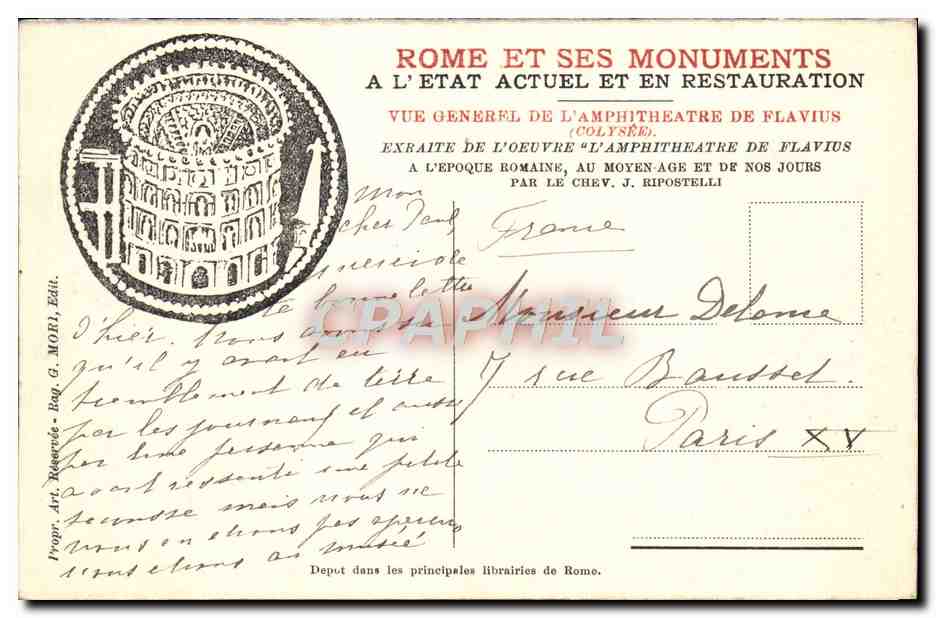 ROME ET SES MONUMENTS
A L'ETAT ACTUEL ET EN RESTAURATION
VUE GENEREL DE L'AMPHITHEATRE DE FLAVIUS
(COLYSÉE).
EXRAITE DE L'OEUVRE "L'AMPHITHEATRE DE FLAVIUS
A L'EPOQUE ROMAINE, AU MOYEN-AGE ET DE NOS JOURS
PAR LE CHEV. J. RIPOSTELLI
Mon
cher Paul,
merci de
ta bonne lettre
d'hier. Nous avons su
qu'il y avait eu
tremblement de terre
par les journaux et aussi
par une personne qui
avait ressenti une petite
secousse mais nous ne
nous en étions pas aperçu
nous étions au musée
France
Monsieur Delome
7 rue Bausset.
Paris XV
CPAPHIL
Propr. Art. Réservée - Rag. G. MORI, Edit.
Depot dans les principales librairies de Rome.